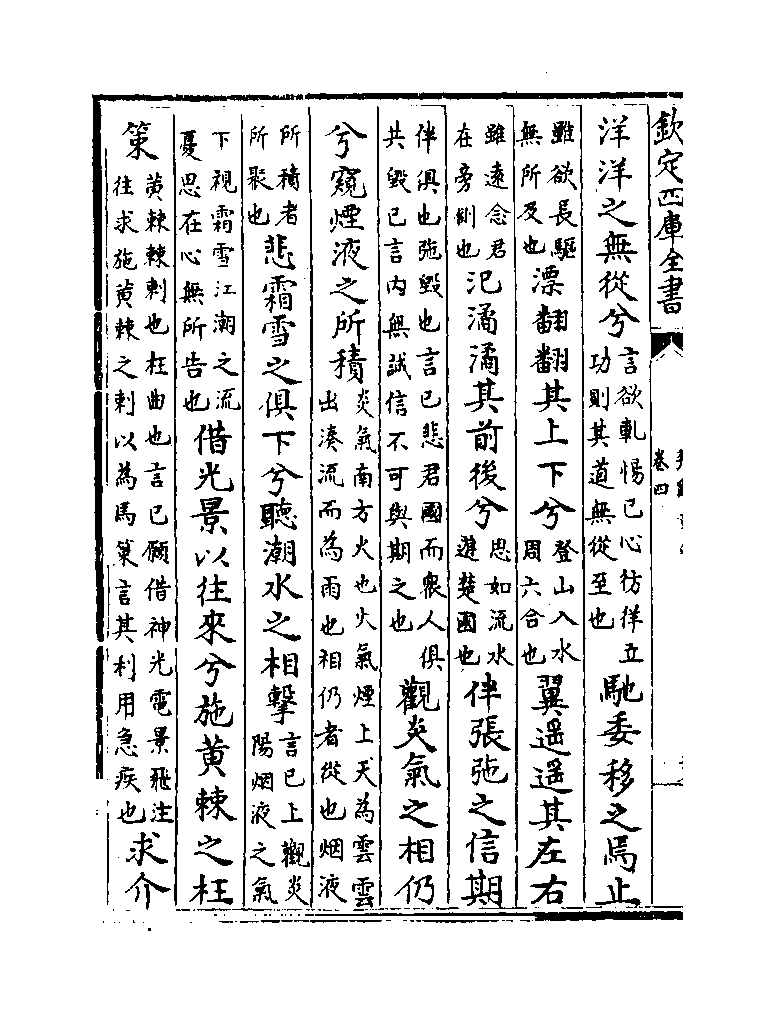 欽定四庫全書
卷四
洋洋之無從兮言欲軋惕已心彷徉立功則其道無從至也馳委移之焉止
雖欲長驅無所及也漂翻翻其上下兮登山入水周六合也翼遥遥其左右
雖遠念君在旁側也氾潏潏其前後兮思如流水遊楚國也伴張弛之信期
伴俱也弛毀也言已悲君國而衆人俱共毀已言内無誠信不可與期之也觀炎氣之相仍
兮窺煙液之所積炎氣南方火也火氣煙上天為雲雲出湊流而為雨也相仍者從也烟液
所積者所聚也悲霜雪之俱下兮聽潮水之相擊言已上觀炎陽烟液之氣
下視霜雪江潮之流憂思在心無所告也借光景以往來兮施黄棘之枉
策黄棘棘刺也枉曲也言已願借神光電景飛注往求施黄棘之刺以為馬策言其利用急疾也求介